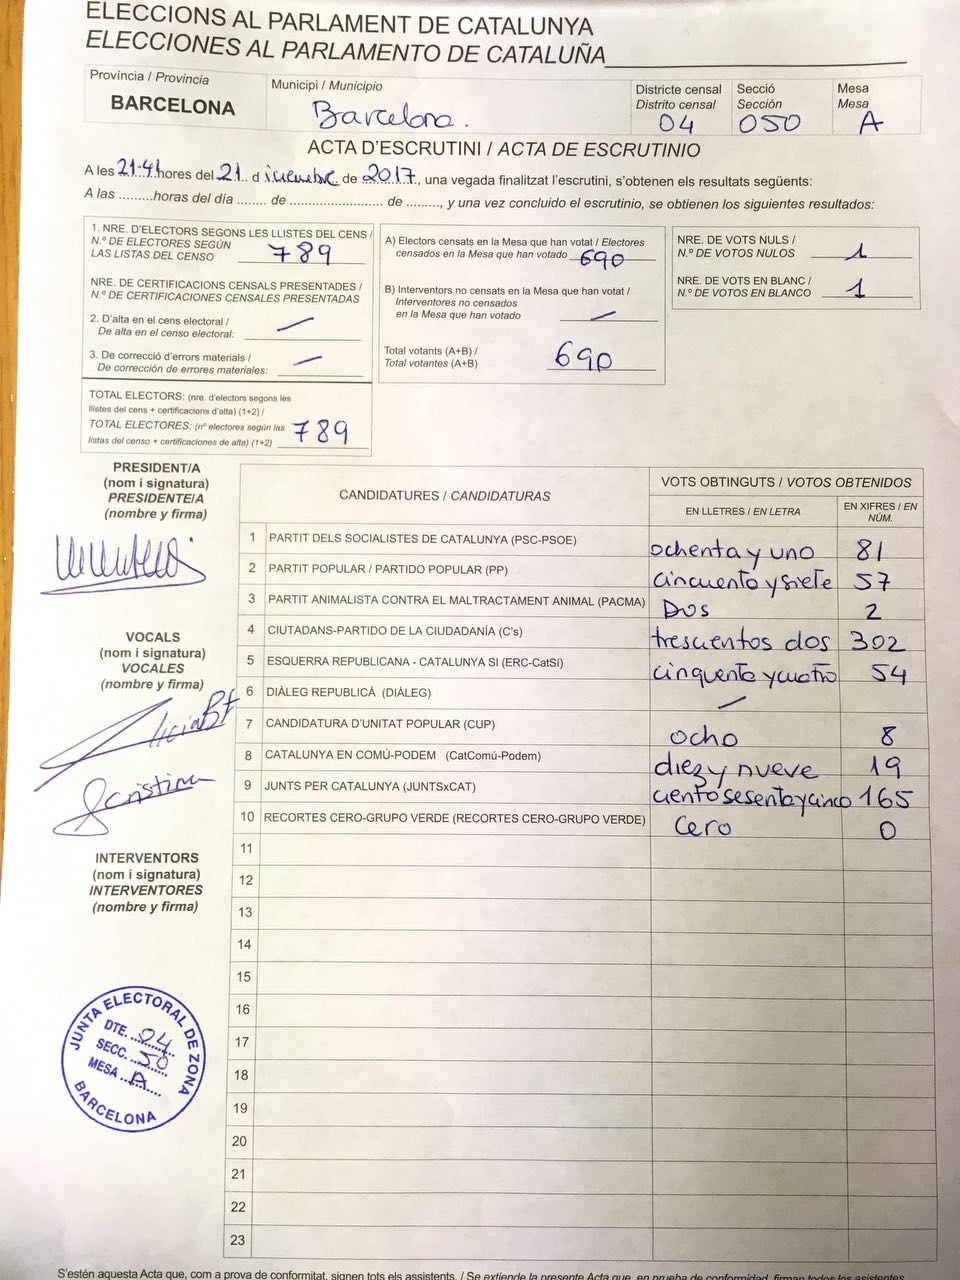 ELECCIONS AL PARLAMENT DE CATALUNYA
ELECCIONES AL PARLAMENTO DE CATALUÑA
Província / Provincia
BARCELONA
Municipi / Municipio
Barcelona.
Districte censal
Distrito censal
04
Secció
Sección
050
Mesa
Mesa
A
ACTA D'ESCRUTINI / ACTA DE ESCRUTINIO
A les 21:41 hores del 21 d iciembre de 2017, una vegada finalitzat l'escrutini, s'obtenen els resultats següents:
A las .........horas del día ........ de .......................... de ........., y una vez concluido el escrutinio, se obtienen los siguientes resultados:
1. NRE. D'ELECTORS SEGONS LES LLISTES DEL CENS /
N.º DE ELECTORES SEGÚN
LAS LISTAS DEL CENSO 789
NRE. DE CERTIFICACIONS CENSALS PRESENTADES /
N.º DE CERTIFICACIONES CENSALES PRESENTADAS
2. D'alta en el cens electoral /
De alta en el censo electoral: —
3. De correcció d'errors materials /
De corrección de errores materiales: —
TOTAL ELECTORS: (nre. d'electors segons les
llistes del cens + certificacions d'alta) (1+2) /
TOTAL ELECTORES: (nº electores según las
listas del censo + certificaciones de alta) (1+2) 789
A) Electors censats en la Mesa que han votat / Electores
censados en la Mesa que han votado 690
B) Interventors no censats en la Mesa que han votat /
Interventores no censados
en la Mesa que han votado —
Total votants (A+B) /
Total votantes (A+B) 690
NRE. DE VOTS NULS /
N.º DE VOTOS NULOS 1
NRE. DE VOTS EN BLANC /
N.º DE VOTOS EN BLANCO 1
PRESIDENT/A
(nom i signatura)
PRESIDENTE/A
(nombre y firma)
VOCALS
(nom i signatura)
VOCALES
(nombre y firma)
Cristina
INTERVENTORS
(nom i signatura)
INTERVENTORES
(nombre y firma)
JUNTA ELECTORAL DE ZONA
DTE. 04
SECC. 50
MESA A
BARCELONA
CANDIDATURES / CANDIDATURAS
VOTS OBTINGUTS / VOTOS OBTENIDOS
EN LLETRES / EN LETRA
EN XIFRES / EN NÚM.
1 PARTIT DELS SOCIALISTES DE CATALUNYA (PSC-PSOE) ochenta y uno 81
2 PARTIT POPULAR / PARTIDO POPULAR (PP) cincuenta y siete 57
3 PARTIT ANIMALISTA CONTRA EL MALTRACTAMENT ANIMAL (PACMA) Dos 2
4 CIUTADANS-PARTIDO DE LA CIUDADANÍA (C's) trescientos dos 302
5 ESQUERRA REPUBLICANA - CATALUNYA SI (ERC-CatSí) cinquenta y cuatro 54
6 DIÀLEG REPUBLICÀ (DIÀLEG) —
7 CANDIDATURA D'UNITAT POPULAR (CUP) ocho 8
8 CATALUNYA EN COMÚ-PODEM (CatComú-Podem) diez y nueve 19
9 JUNTS PER CATALUNYA (JUNTSxCAT) ciento sesenta y cinco 165
10 RECORTES CERO-GRUPO VERDE (RECORTES CERO-GRUPO VERDE) Cero 0
11
12
13
14
15
16
17
18
19
20
21
22
23
S'estén aquesta Acta que, com a prova de conformitat, signen tots els assistents. / Se extiende la presente Acta que, en prueba de conformidad, firman todos los asistentes.